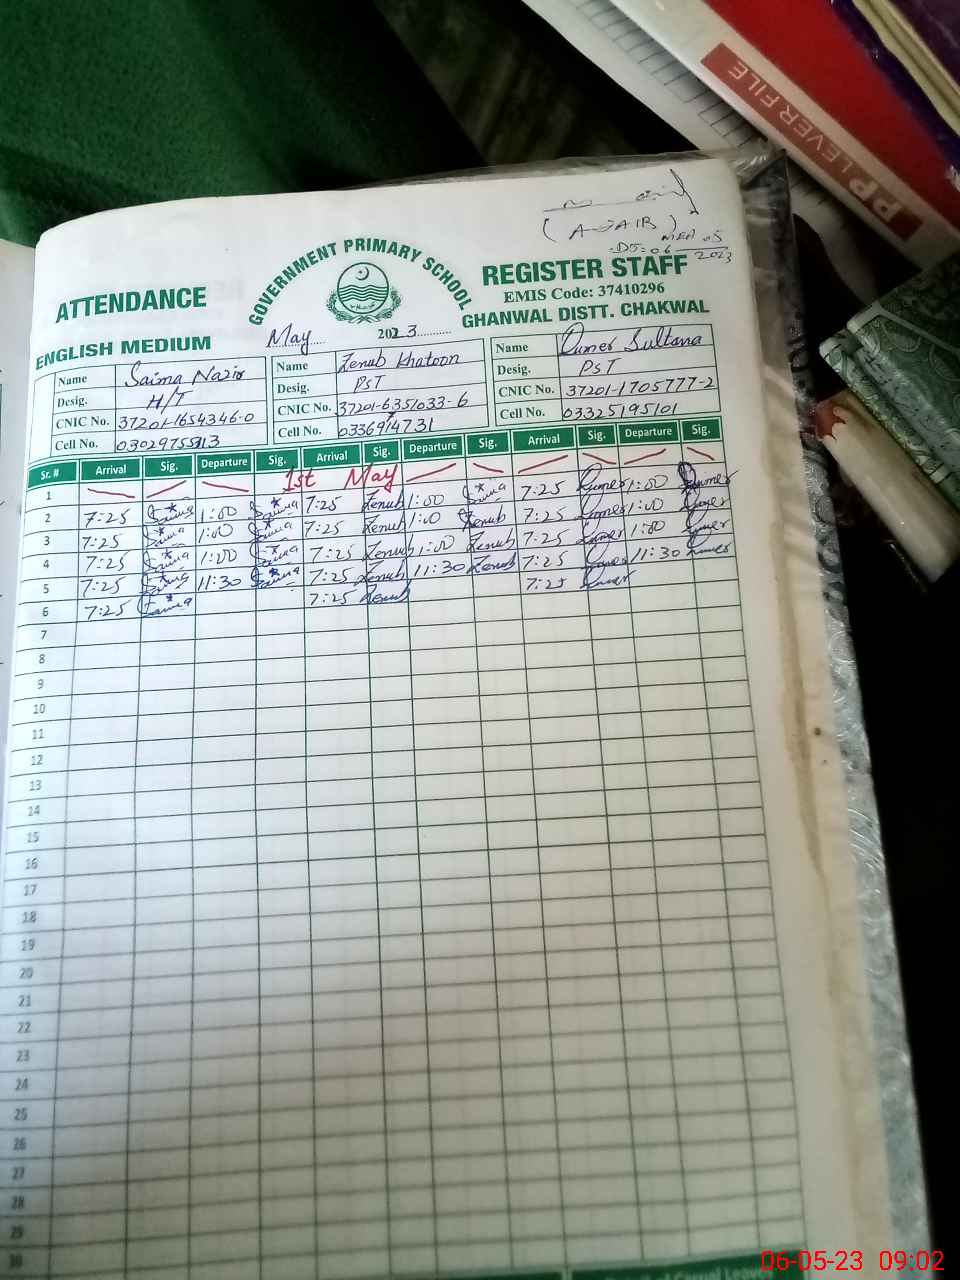 PP LEVER FILE
(A-JAIB)
MEA 05
DT: 06
2023
ATTENDANCE
GOVERNMENT PRIMARY SCHOOL
REGISTER STAFF
EMIS Code: 37410296
GHANWAL DISTT. CHAKWAL
ENGLISH MEDIUM
May 2023
Name Saima Nazir Name Zenub Khatoon Name Qumer Sultana
Desig. H/T Desig. PST Desig. PST
CNIC No. 37201-1654346-0 CNIC No. 37201-6351033-6 CNIC No. 37201-1705777-2
Cell No. Cell No. 03369147731 Cell No. 03325195101
Sr. # Arrival Sig. Departure Sig. Arrival Sig. Departure Sig. Arrival Sig. Departure Sig.
1 1st May
2 7:25 Saima 1:00 Saima 7:25 Zenub 1:00 Saima 7:25 Qumer 1:00 Qumer
3 7:25 Saima 1:00 Saima 7:25 Zenub 1:00 Zenub 7:25 Qumer 1:00 Qumer
4 7:25 Saima 1:00 Saima 7:25 Zenub 1:00 Zenub 7:25 Qumer 1:00 Qumer
5 7:25 Saima 11:30 Saima 7:25 Zenub 11:30 Zenub 7:25 Qumer 11:30 Qumer
6 7:25 Saima 7:25 Zenub 7:25 Qumer
7
8
9
10
11
12
13
14
15
16
17
18
19
20
21
22
23
24
25
26
27
28
29
30
06-05-23 09:02